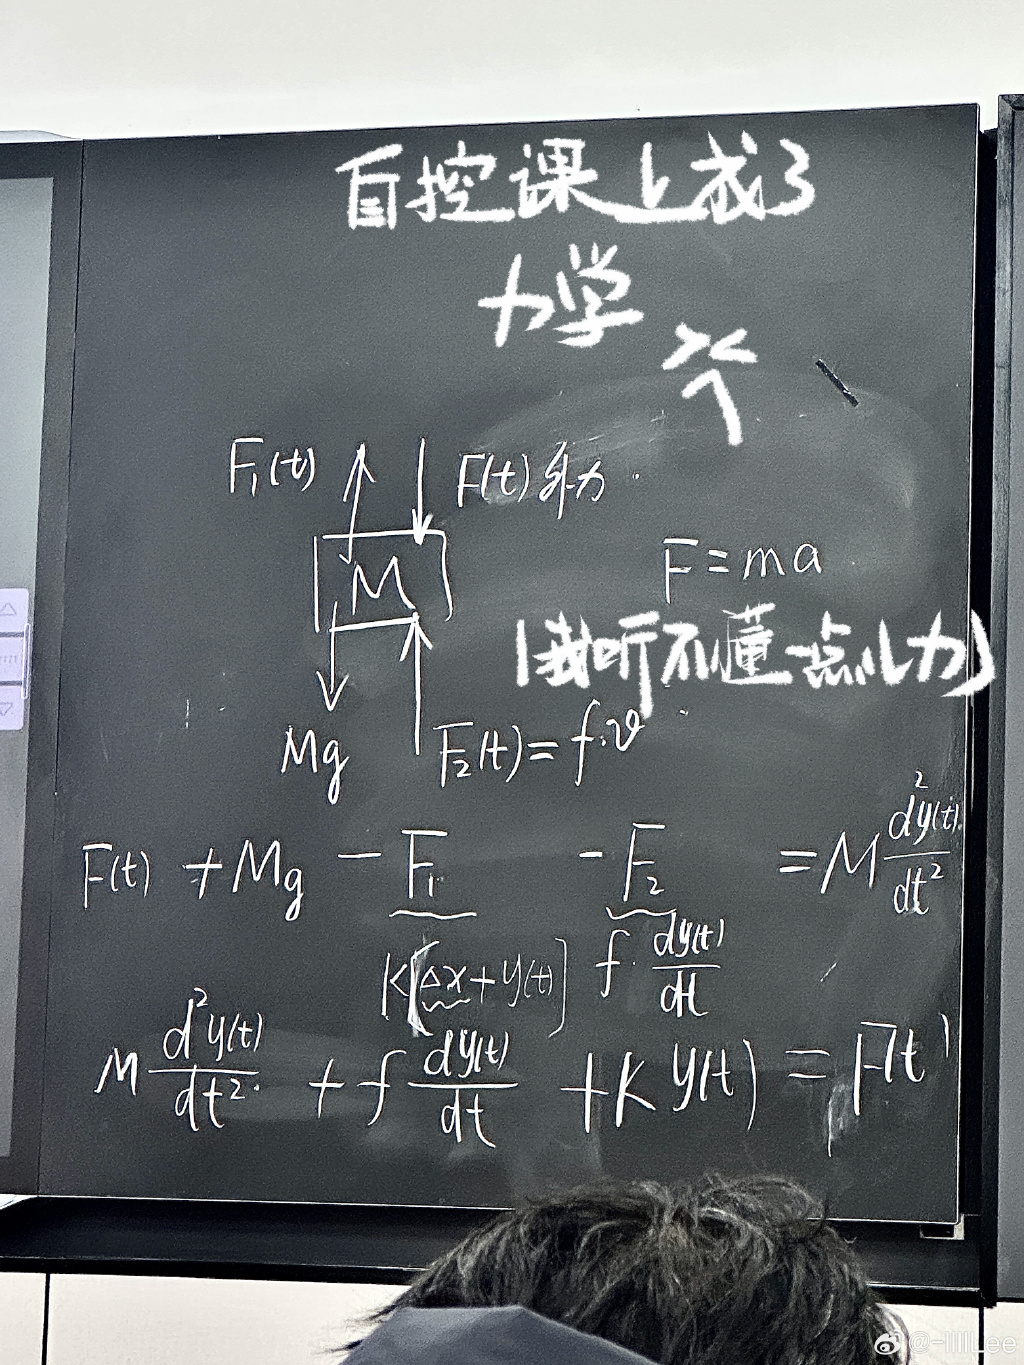 自控课上成了
力学
F₁(t) F(t) 外力
M
F=ma
(我听不懂一点儿力)
Mg F₂(t)=f·v
F(t) +Mg -F₁ -F₂ =M d²y(t)/dt²
K[Δx+y(t)] f·dy(t)/dt
M d²y(t)/dt² + f dy(t)/dt +K y(t) = F(t)
@-IIIILee